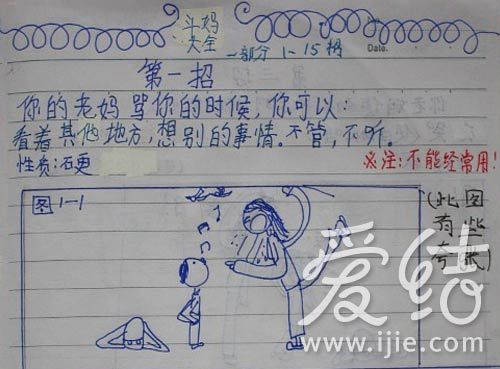 斗妈
大全
一部分1-15招
Date.
第一招
你的老妈骂你的时候,你可以:
看着其他地方,想别的事情.不管,不听.
性质:石更
※注:不能经常用!
图1-1
(此图有些夸张)
爱结
www.ijie.com